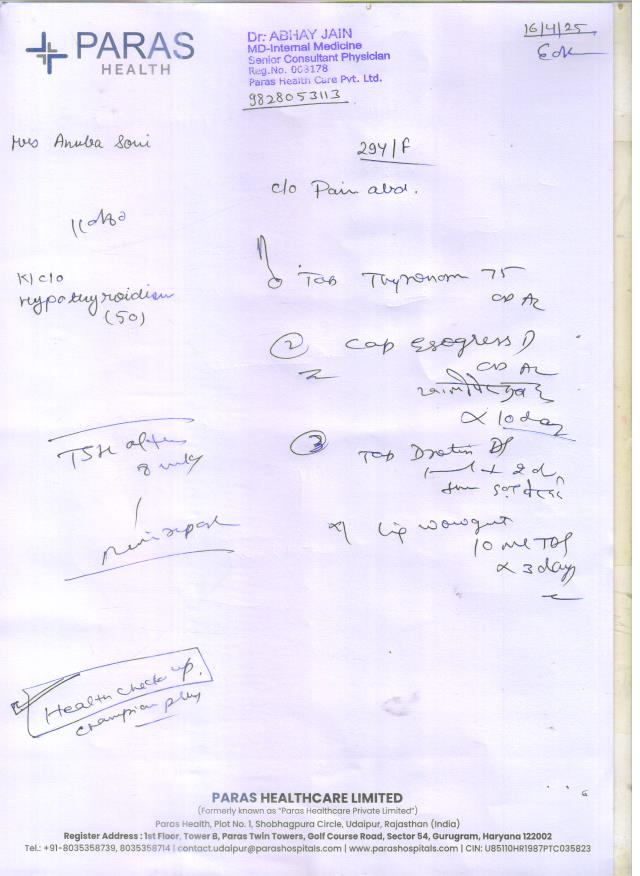 PARAS
HEALTH
Dr. ABHAY JAIN
MD-Internal Medicine
Senior Consultant Physician
Reg.No. 003178
Paras Health Care Pvt. Ltd.
9828053113
16/4/25
Mrs Anuba Soni
29Y/F
c/o Pain abd.
K/c/o
Hypothyroidism
(50)
Tab Thyronorm 75
OD AC
2 Cap Esogress D
OD AC
x 10 day
3 Tab Drotin DS
x 2 d
TSH after
8 wky
x 3 day
10 ml TDS
Health check up.
Champion plus
PARAS HEALTHCARE LIMITED
(Formerly known as "Paras Healthcare Private Limited")
Paras Health, Plot No. 1, Shobhagpura Circle, Udaipur, Rajasthan (India)
Register Address : 1st Floor, Tower B, Paras Twin Towers, Golf Course Road, Sector 54, Gurugram, Haryana 122002
Tel.: +91-8035358739, 8035358714 | contact.udaipur@parashospitals.com | www.parashospitals.com | CIN: U85110HR1987PTC035823